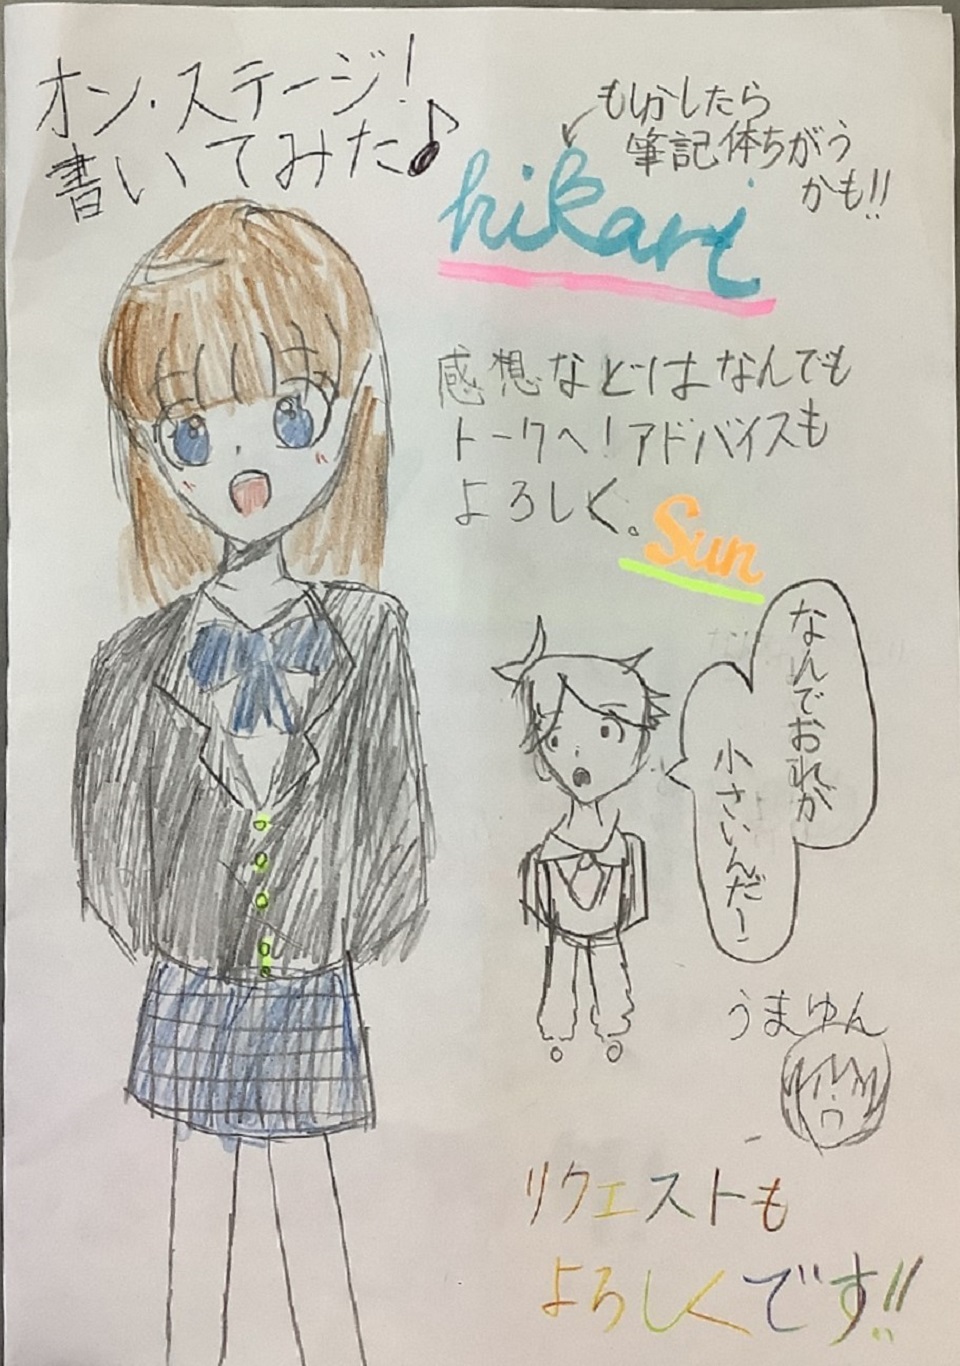 オン・ステージ!
書いてみた♪
もしかしたら
筆記体ちがう
かも!!
hikari
感想などはなんでも
トークへ!アドバイスも
よろしく。
Sun
なんでおれが
小さいんだー!
うまゆん
リクエストも
よろしくです!!